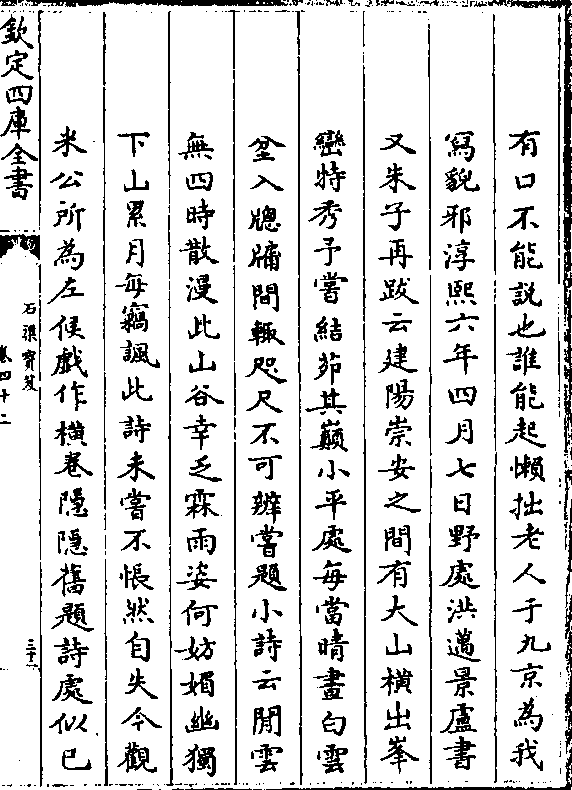 有口不能説也誰能起懶拙老人于九京為我
寫貌邪淳熙六年四月七日野處洪邁景盧書
又朱子再跋云建陽崇安之間有大山橫出峯
巒特秀予嘗結茆其巔小平處每當晴晝白雲
坌入牕牖間輒咫尺不可辨嘗題小詩云閒雲
無四時散漫此山谷幸乏霖雨姿何妨媚幽獨
下山累月每竊諷此詩未嘗不悵然自失今觀
米公所為左候戲作横卷隱隱舊題詩處似已
欽定四庫全書
石渠寳笈
卷四十二
三十二